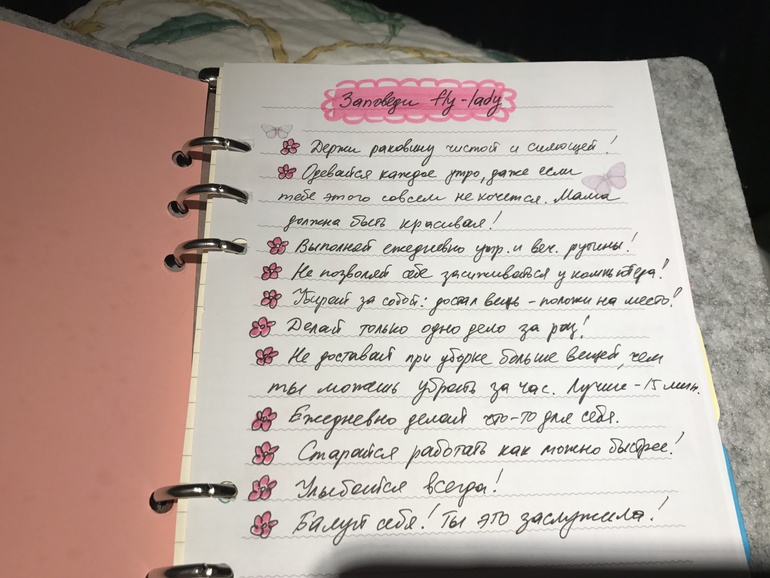 Заповеди fly-lady
Держи раковину чистой и сияющей!
Одевайся каждое утро, даже если
тебе этого совсем не хочется. Мама
должна быть красивая!
Выполняй ежедневно утр. и веч. рутины!
Не позволяй себе засиживаться у компьютера!
Убирай за собой: достал вещь - положи на место!
Делай только одно дело за раз!
Не доставай при уборке больше вещей, чем
ты можешь убрать за час. Лучше - 15 мин.
Ежедневно делай что-то для себя.
Старайся работать как можно быстрее!
Улыбайся всегда!
Балуй себя! Ты это заслужила!